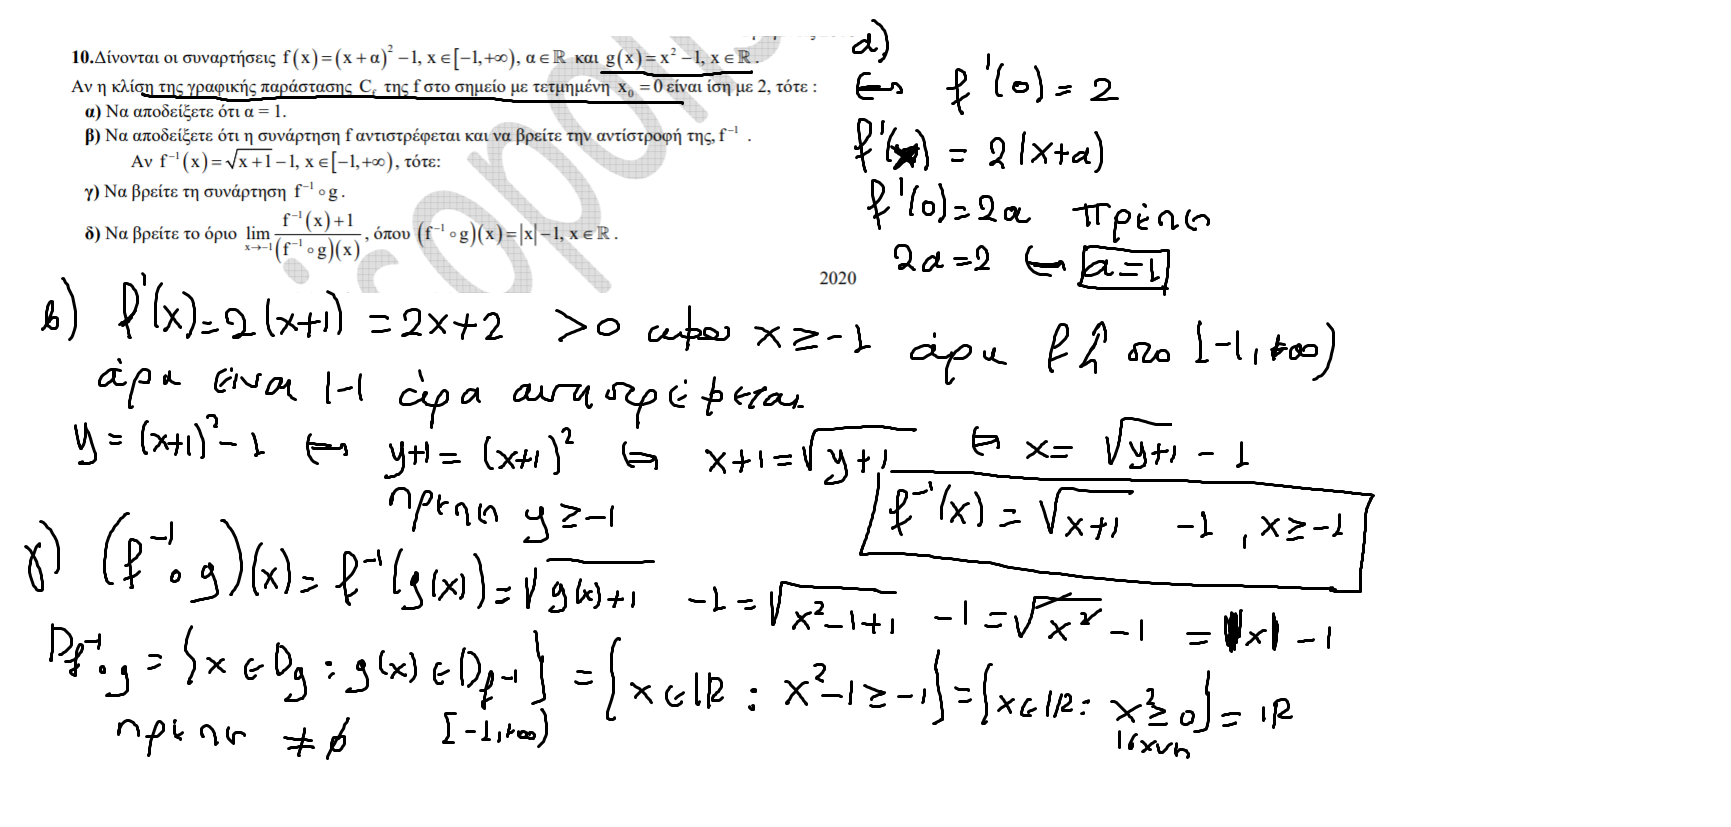 10.Δίνονται οι συναρτήσεις f(x)=(x+α)²−1, x∈[−1,+∞), α∈ℝ και g(x)=x²−1, x∈ℝ.
Αν η κλίση της γραφικής παράστασης C_f της f στο σημείο με τετμημένη x₀=0 είναι ίση με 2, τότε :
α) Να αποδείξετε ότι α = 1.
β) Να αποδείξετε ότι η συνάρτηση f αντιστρέφεται και να βρείτε την αντίστροφή της, f⁻¹ .
Αν f⁻¹(x)=√(x+1)−1, x∈[−1,+∞), τότε:
γ) Να βρείτε τη συνάρτηση f⁻¹∘g.
δ) Να βρείτε το όριο lim x→−1 (f⁻¹(x)+1)/((f⁻¹∘g)(x)), όπου (f⁻¹∘g)(x)=|x|−1, x∈ℝ.
2020
α)
⇔ f'(0) = 2
f'(x) = 2(x+α)
f'(0)=2α πρέπει
2α=2 ⇔ α=1
β) f'(x)=2(x+1)=2x+2 >0 αφου x≥−1 άρα f↑ στο [−1,+∞)
άρα είναι 1-1 άρα αντιστρέφεται
y=(x+1)²−1 ⇔ y+1=(x+1)² ⇔ x+1=√(y+1) ⇔ x=√(y+1) −1
πρεπει y≥−1
f⁻¹(x)=√(x+1) −1 , x≥−1
γ) (f⁻¹∘g)(x)=f⁻¹(g(x))=√(g(x)+1) −1=√(x²−1+1) −1=√(x²)−1 =|x|−1
D_f⁻¹∘g = {x∈D_g : g(x)∈D_f⁻¹} = {x∈ℝ : x²−1≥−1}={x∈ℝ: x²≥0}=ℝ
πρεπει ≠∅ [−1,+∞) ισχυει